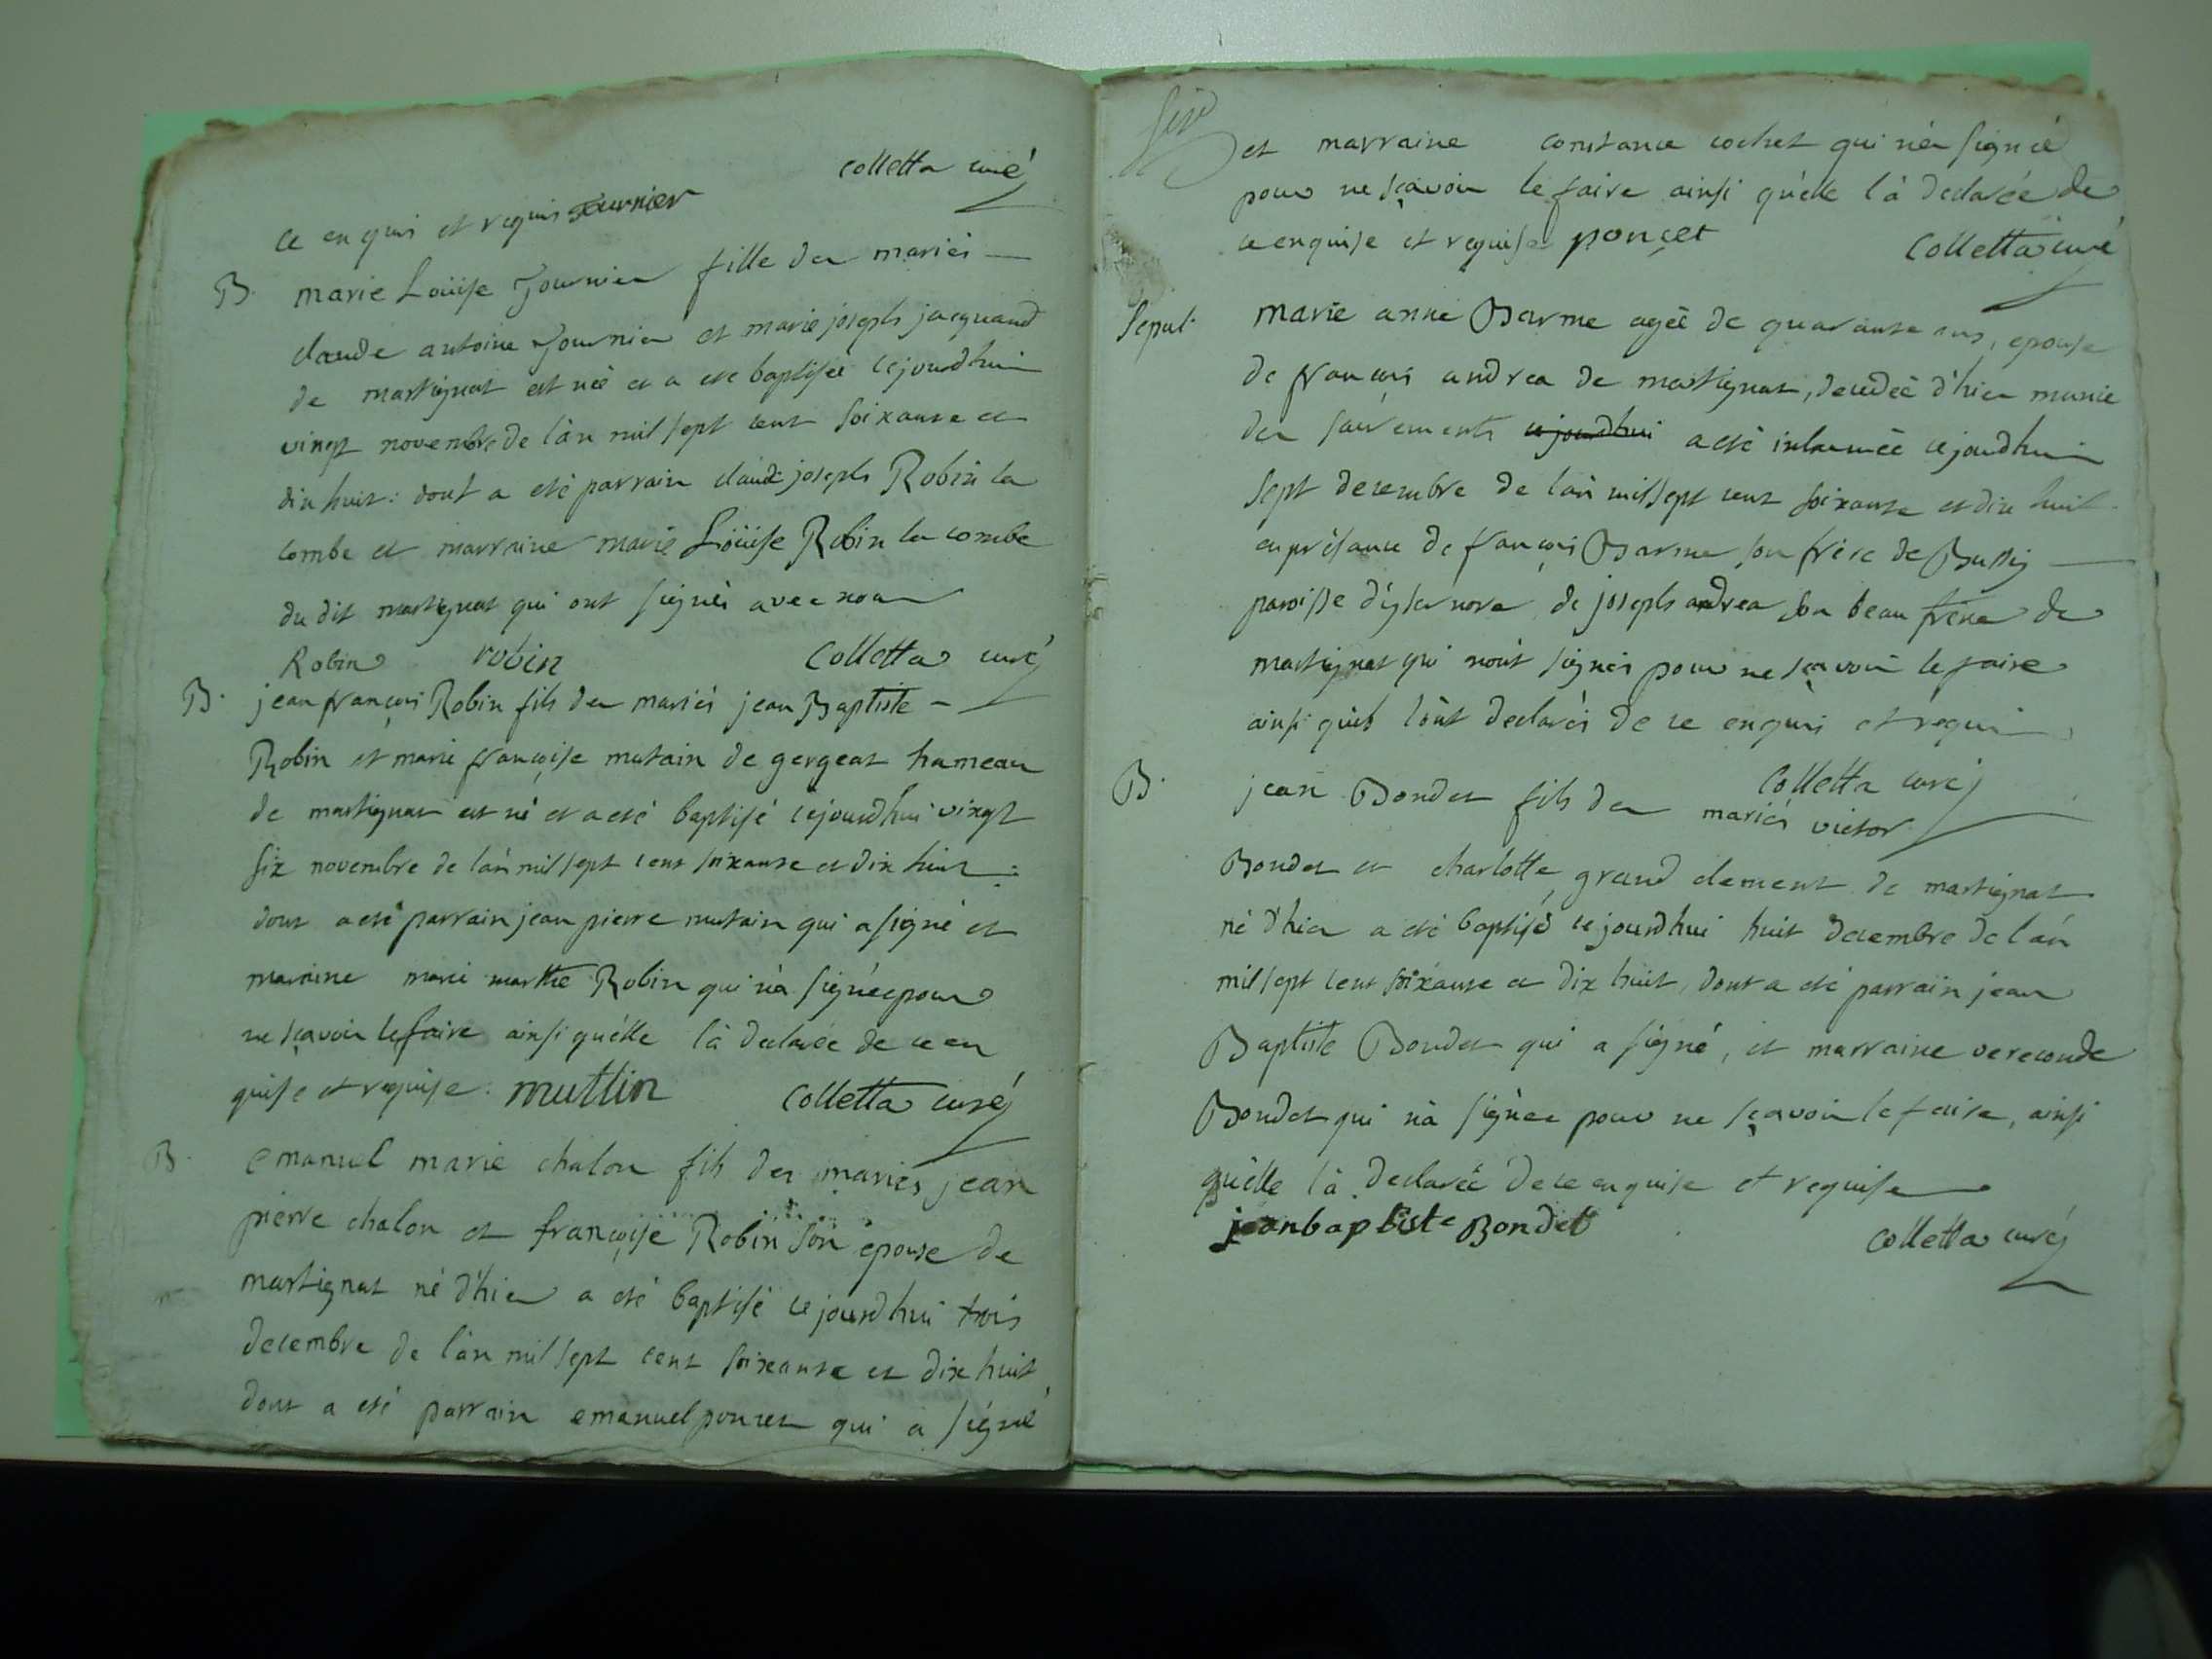 colletta curé
ce enquis et requis fournier
B. marie Loüise fournier fille des mariés
claude antoine fournier et marie joseph jacquand
de martignat est née et a été baptisée cejourdhui
vingt novembre de l'àn mil sept cent soixante et
dix huit: dont a eté parrain claude joseph Robin la
combe et marraine marie Loüise Robin la combe
du dit martignat qui ont signés avec nous
Robin robin colletta curé
B. jean françois Robin fils des mariés jean Baptiste
Robin et marie françoise mutain de gergeat hameau
de martignat est né et a eté baptisé cejourdhui vingt
six novembre de l'àn mil sept cent soixante et dix huit:
dont a eté parrain jean pierre mutain qui a signé et
marraine marie marthe Robin qui n'a signée pour
ne sçavoir le faire ainsi qu'elle l'à declarée de ce en
quise et requise: mutlin colletta curé
B. emanuel marie chalon fils des mariés jean
pierre chalon et françoise Robin son epouse de
martignat né d'hier a eté baptisé cejourdhui trois
decembre de l'àn mil sept cent soixante et dix huit
dont a eté parrain emanuel poncet qui a signé
et marraine constance cochet qui n'a signée
pour ne sçavoir le faire ainsi qu'elle l'à declarée de
ce enquise et requise ponçet colletta curé
Sepul. marie anne Barme agée de quarante ans, epouse
de françois andrea de martignat, decedée d'hier munie
des sacrements cejourdhui a eté inhumée cejourdhui
sept decembre de l'àn mil sept cent soixante et dix huit
en présance de françois Barme son frère de Bussy
paroisse d'ysernore de joseph andrea son beau frère de
martignat qui n'ont signés pour ne sçavoir le faire
ainsi qu'ils l'ont declarés de ce enquis et requis
colletta curé
B. jean Bondet fils des mariés victor
Bondet et charlotte grand clement de martignat
né d'hier a eté baptisé cejourdhui huit decembre de l'àn
mil sept cent soixante et dix huit, dont a eté parrain jean
Baptiste Bondet qui a signé, et marraine vereconde
Bondet qui n'a signée pour ne sçavoir le faire, ainsi
qu'elle l'à declarée de ce enquise et requise
jeanbaptiste Bondet colletta curé